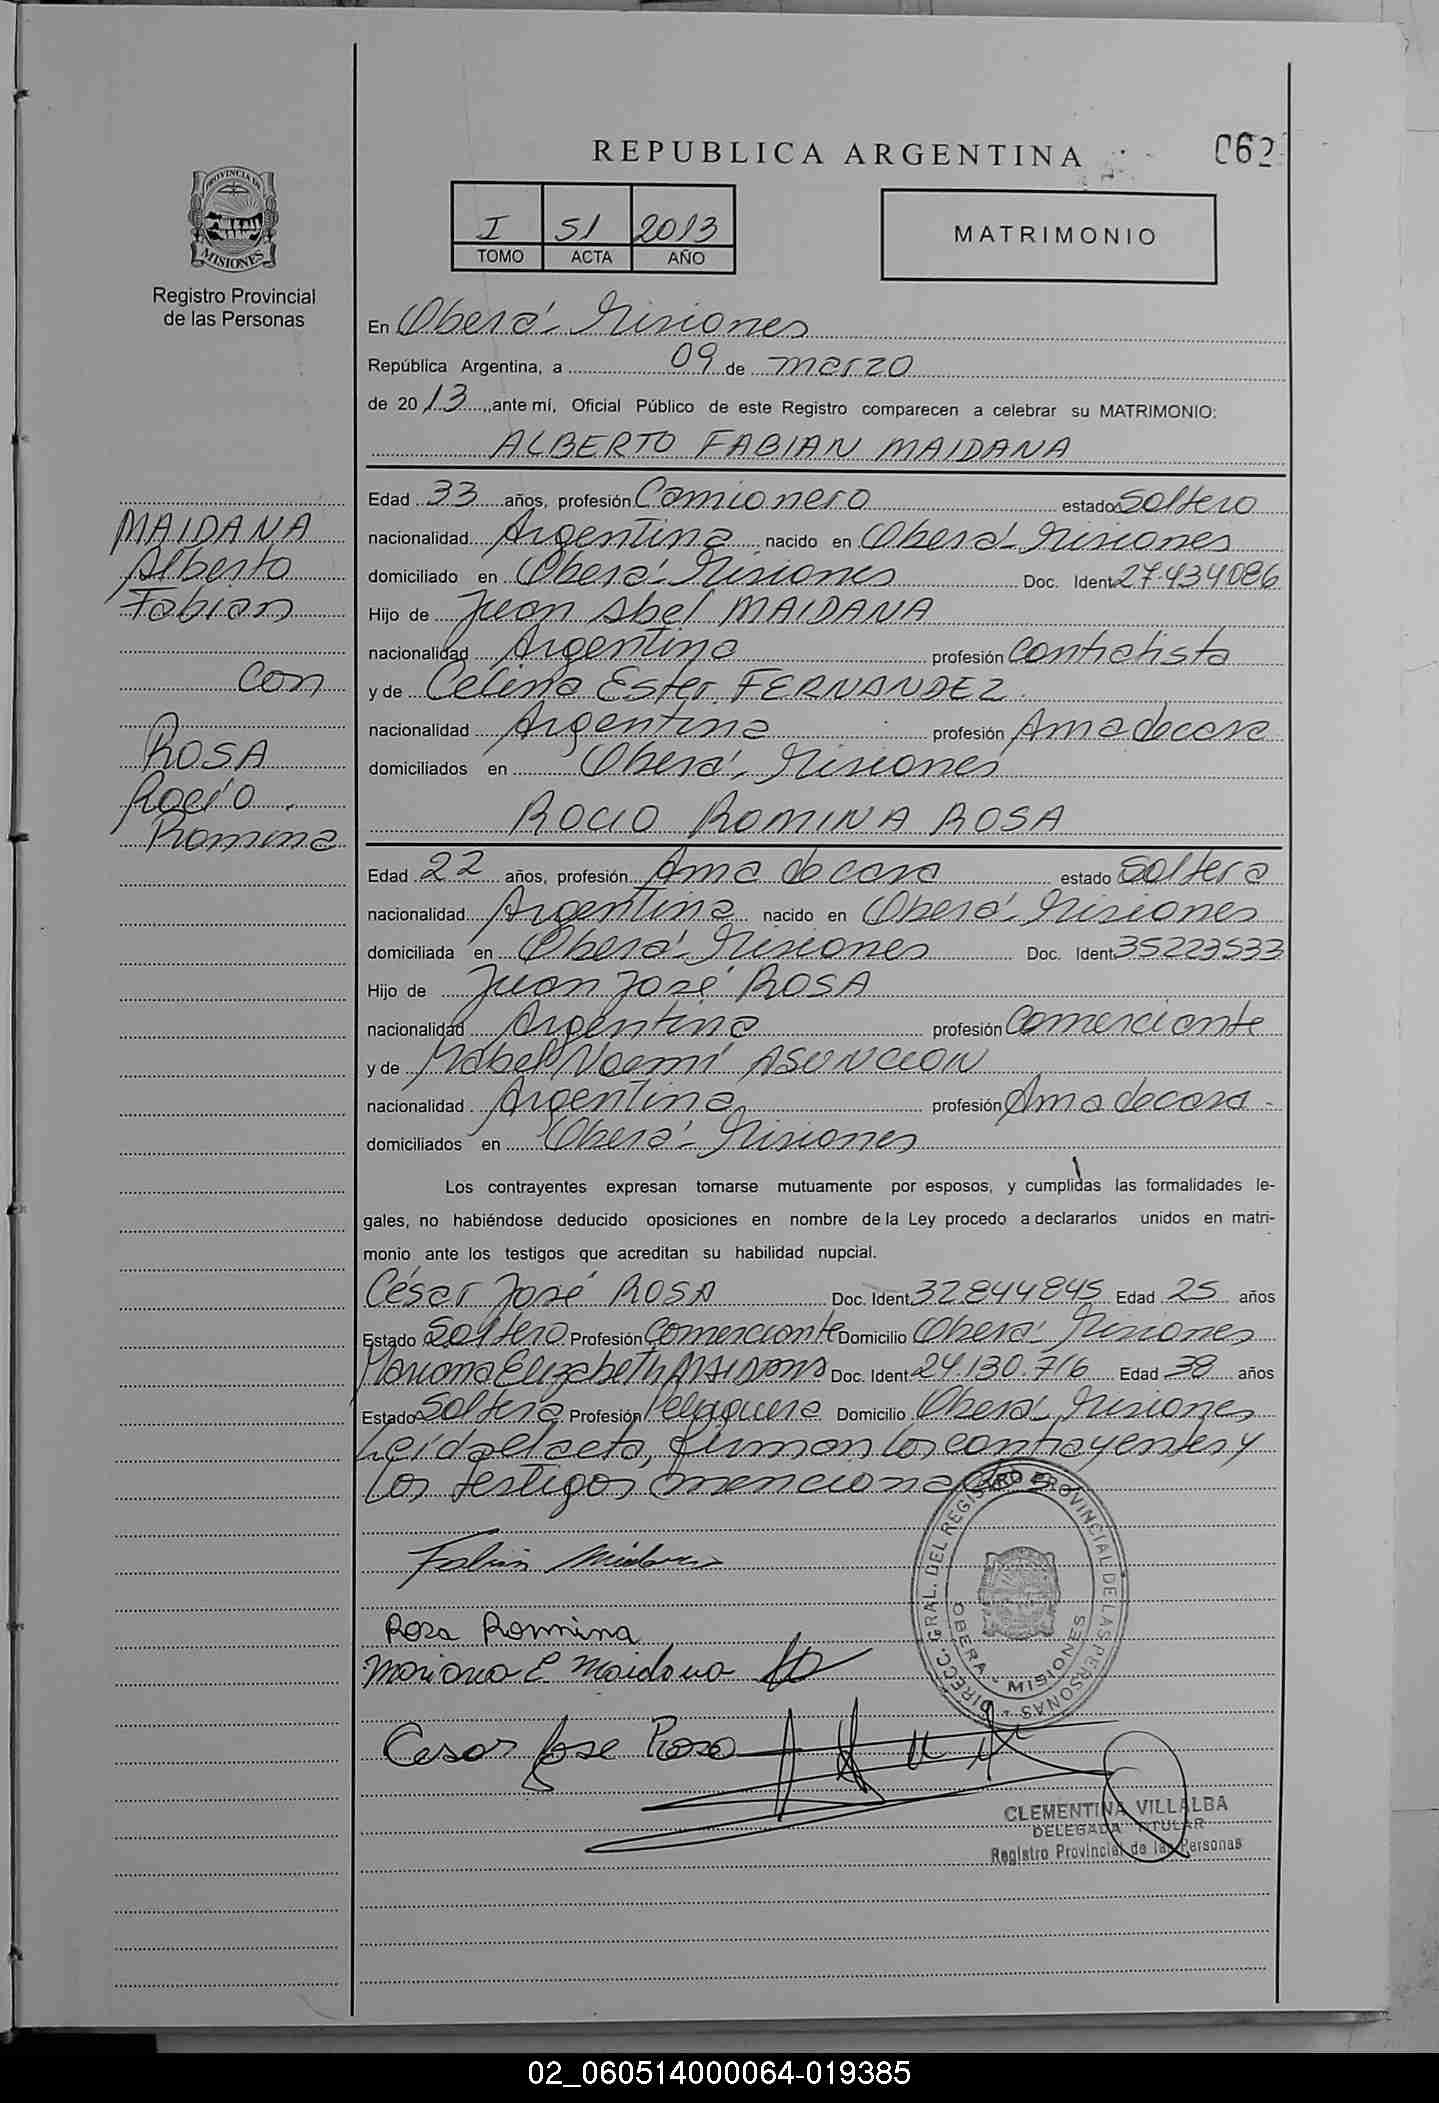 REPUBLICA ARGENTINA
062
PROVINCIA DE
MISIONES
Registro Provincial
de las Personas
I 51 2013
TOMO ACTA AÑO
MATRIMONIO
En Oberá - Misiones
República Argentina, a 09 de marzo
de 2013, ante mí, Oficial Público de este Registro comparecen a celebrar su MATRIMONIO:
ALBERTO FABIAN MAIDANA
MAIDANA
Alberto
Fabian
con
ROSA
Rocío
Romina
Edad 33 años, profesión Camionero estado Soltero
nacionalidad Argentina nacido en Oberá - Misiones
domiciliado en Oberá - Misiones Doc. Ident. 27.434.086
Hijo de Juan Abel MAIDANA
nacionalidad Argentina profesión Contratista
y de Celina Ester FERNANDEZ.
nacionalidad Argentina profesión Ama de casa
domiciliados en Oberá - Misiones
ROCIO ROMINA ROSA
Edad 22 años, profesión Ama de casa estado Soltera
nacionalidad Argentina nacido en Oberá - Misiones
domiciliada en Oberá - Misiones Doc. Ident. 35223533
Hijo de Juan José ROSA
nacionalidad Argentina profesión Comerciante
y de Mabel Noemí ASUNCION
nacionalidad Argentina profesión Ama de casa -
domiciliados en Oberá - Misiones
Los contrayentes expresan tomarse mutuamente por esposos, y cumplidas las formalidades le-
gales, no habiéndose deducido oposiciones en nombre de la Ley procedo a declararlos unidos en matri-
monio ante los testigos que acreditan su habilidad nupcial.
César José ROSA Doc. Ident. 32.844.845 Edad 25 años
Estado Soltero Profesión Comerciante Domicilio Oberá - Misiones
Mariana Elizabeth MAIDANA Doc. Ident. 24.130.716 Edad 38 años
Estado Soltera Profesión Peluquera Domicilio Oberá - Misiones
Leída el acta, firman los contrayentes y
los testigos mencionados
DIRECC. GRAL. DEL REGISTRO PROVINCIAL DE LAS PERSONAS
OBERA - MISIONES
Fabian Maidana
Rosa Romina
Mariana E. Maidana
Cesar Jose Rosa
CLEMENTINA VILLALBA
DELEGADA TITULAR
Registro Provincial de las Personas
02_060514000064-019385